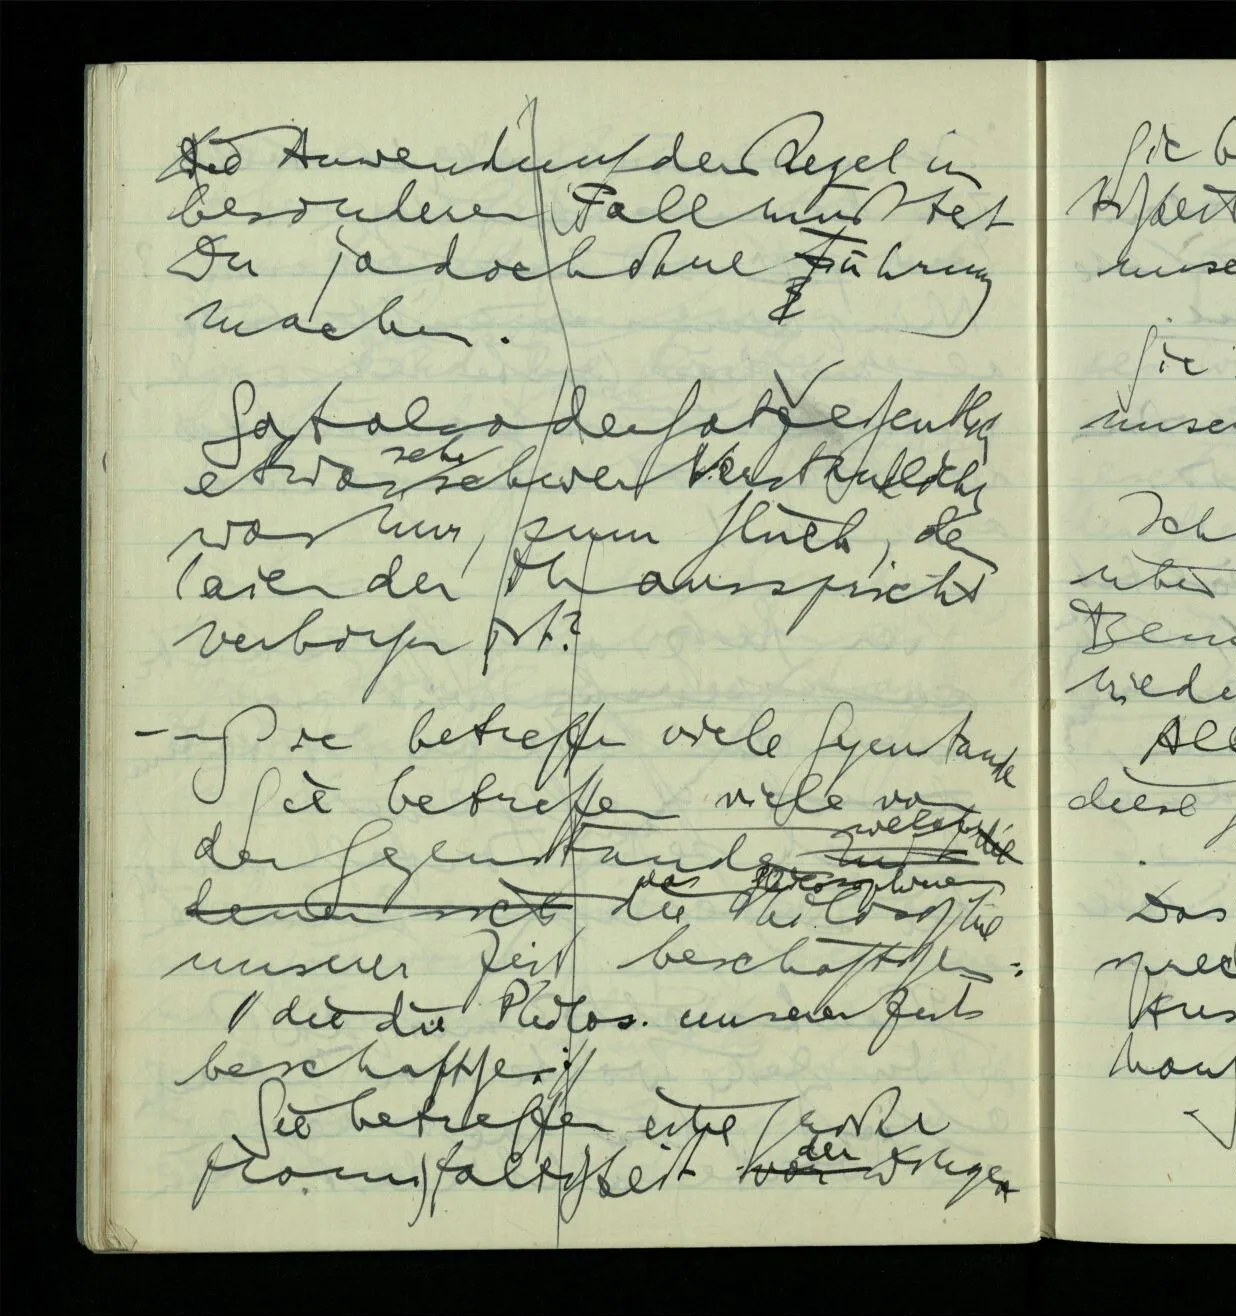 Die Anwendung der Regel im
besonderen Fall mußt
Du ja doch ohne Führung
machen.
Sagt also der Satz eigentlich
etwas sehr schwer Verständliches
was nur, zum Glück, den
Laien der
verborgen ist?
Sie betreffen viele Gegenstände
Sie betreffen viele von
den Gegenständen welche die
denen sich die das Philosophie Philosophieren
unserer Zeit beschäftigen:
"die die Philos. unserer Zeit
beschäftigen:"
Sie betreffen eine große
Mannigfaltigkeit von der Dingen
Sie
unse
Sie
unser
Ich
über
Bem
wiede
All
diese
Das
sprec